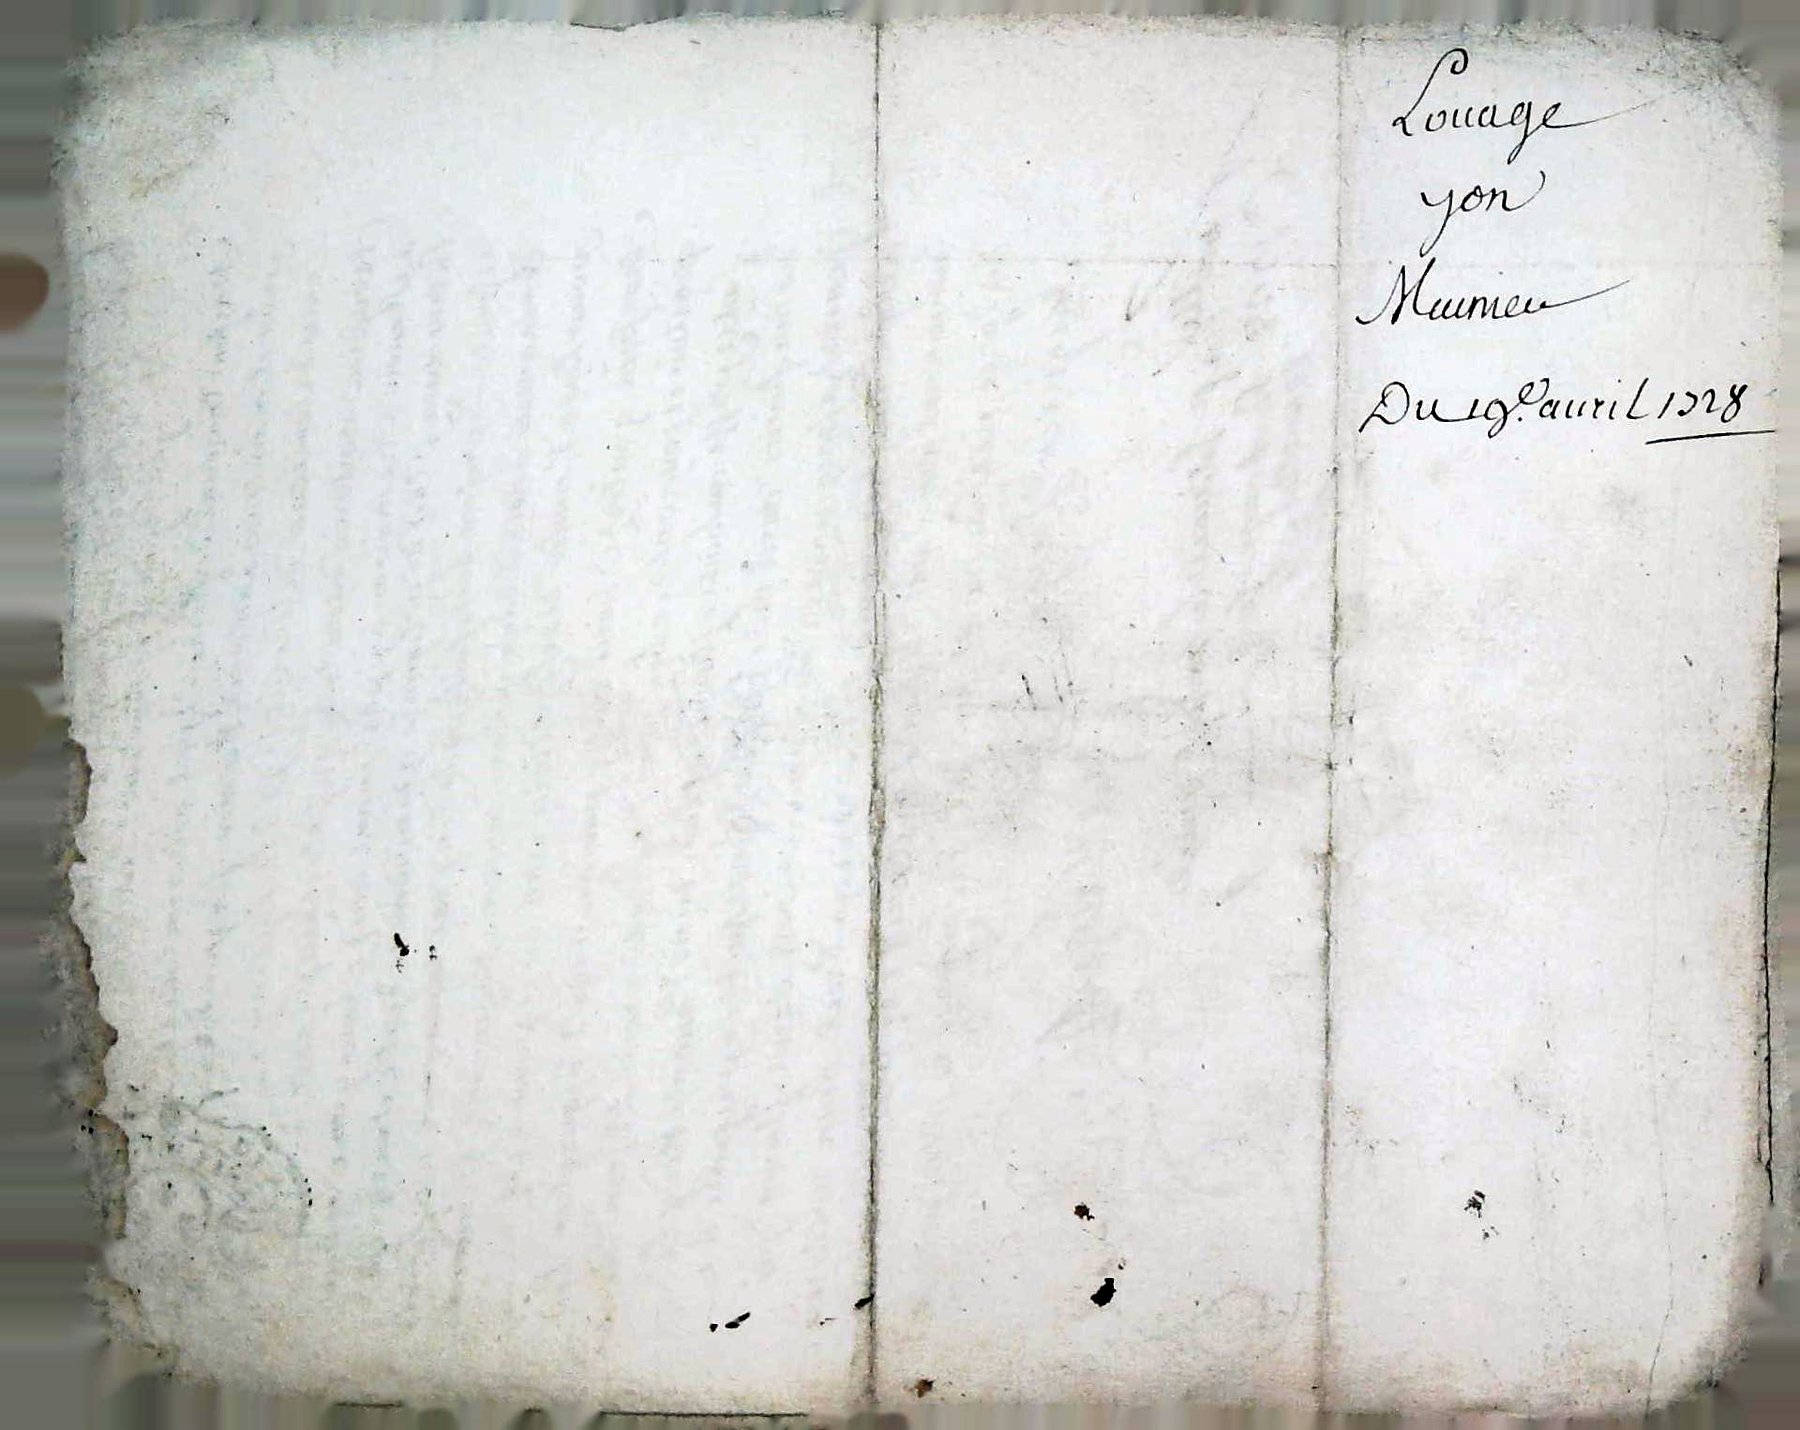 Louage
yon
Meunieu
Du 19e. auril 1728